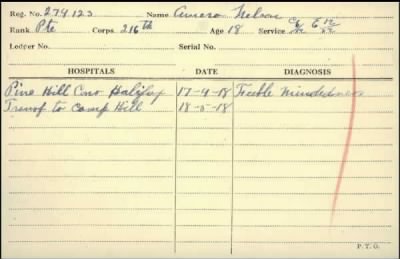 Reg. No. 274123 Name Amero Nelson
Rank Pte Corps 216th Age 18 Service
Ledger No. Serial No.
HOSPITALS DATE DIAGNOSIS
Pine Hill Con Halifax 17-4-18 Feeble Mindedness
Transf to Camp Hill 18-5-18
P.T.O.